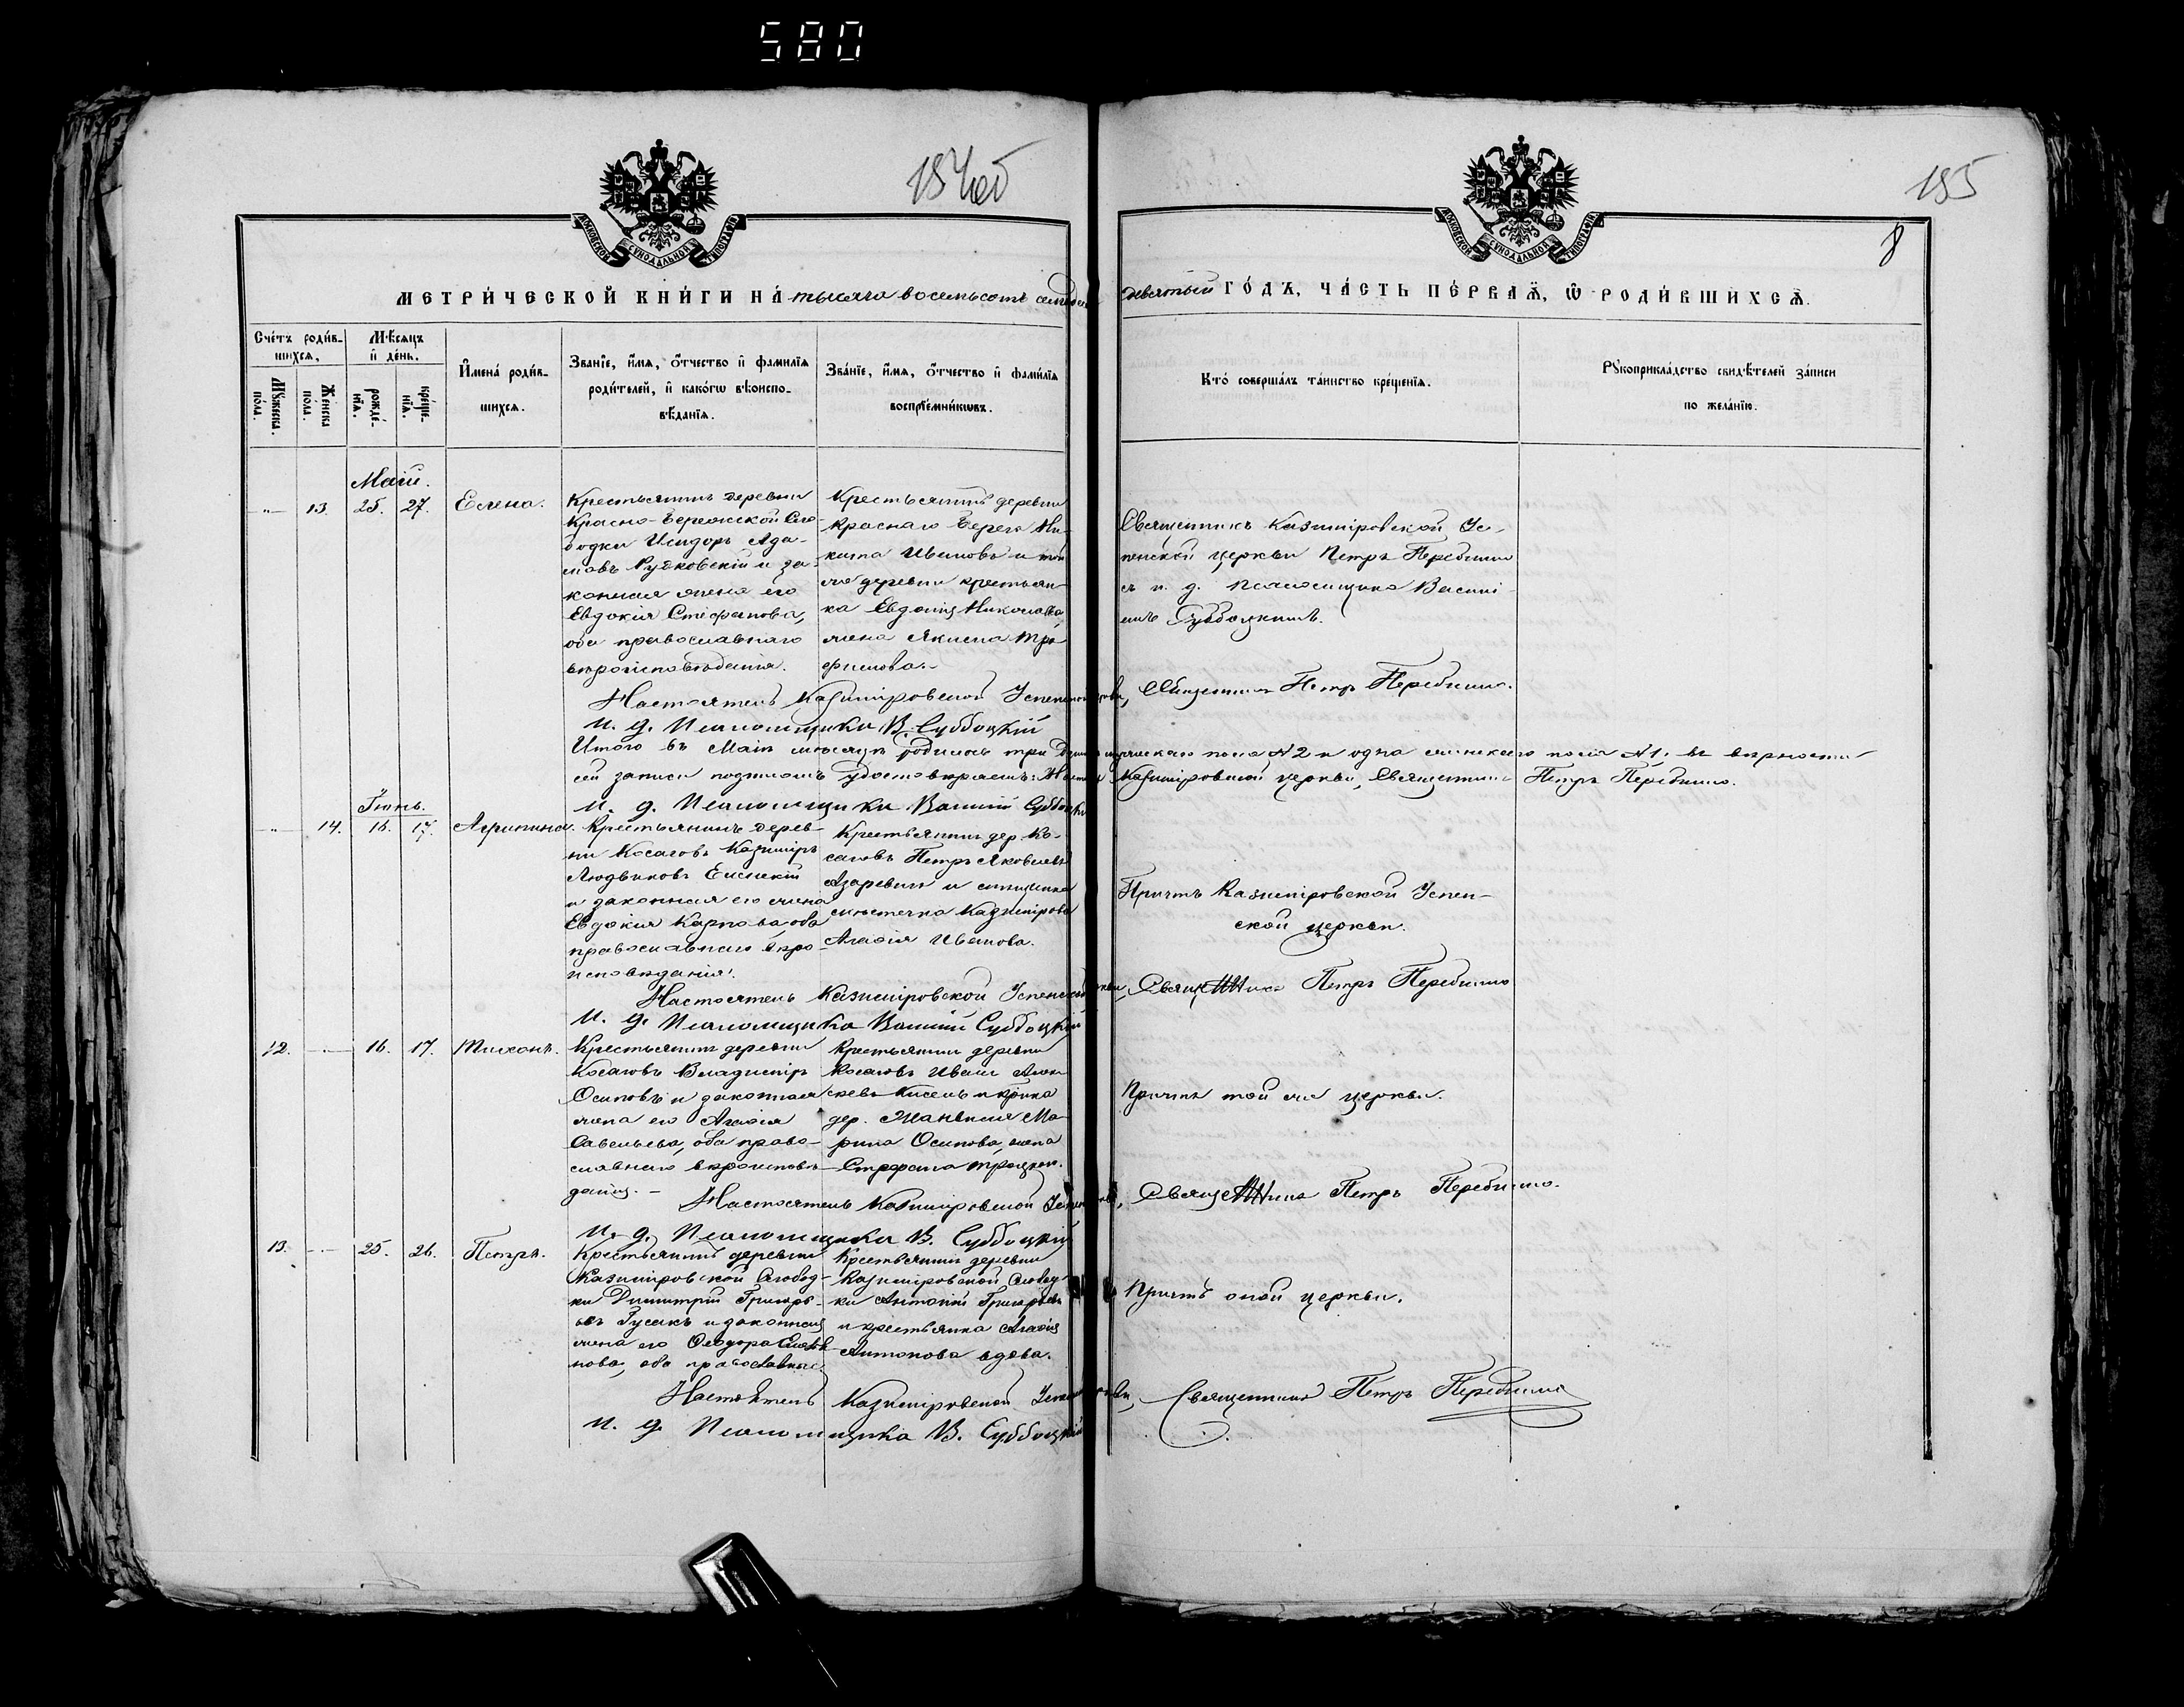 580
154об
155
8
МОСКОВСКОЙ СѴНОДАЛЬНОЙ ТИПОГРАФІИ
МОСКОВСКОЙ СѴНОДАЛЬНОЙ ТИПОГРАФІИ
МЕТРИ́ЧЕСКОЙ КНИ́ГИ НА́ тысяча восемьсотъ семьдесятъ девятый ГО́ДЪ, ЧА́СТЬ ПЕ́РВАѦ, Ѡ РОДИ́ВШИХСѦ.
Сче́тъ роди́в-
шихсѧ,
Мꙋ́жеска пола.
Же́нска пола.
Мѣ́сѧцъ
и҆ де́нь.
рожде́-
нїѧ.
креще́-
нїѧ.
И҆мена́ роди́в-
шихсѧ.
Зва́нїе, и҆́мѧ, ѻ҆́тчество и҆ фами́лїѧ
роди́телей, и҆ како́гѡ вѣ́роиспо-
вѣ́данїѧ.
Зва́нїе, и҆́мѧ, ѻ҆́тчество и҆ фами́лїѧ
воспрїе́мникѡвъ.
Кто́ соверша́лъ та́инство креще́нїѧ.
Рꙋкоприкла́дство свидѣ́телей за́писи
по жела́нїю.
Маій.
-"- 13. 25. 27. Елена.
Крестьянинъ деревни
Красно-Бережской Сло-
бодки Исидоръ Ада-
мовъ Рудковскій и за-
конная жена его
Евдокія Стефанова,
оба православнаго
вѣроисповѣданія.
Крестьянинъ деревни
Краснаго Берега Ни-
кита Ивановъ и той
же деревни крестьян-
ка Евдокія Николаева
жена Якима Тро-
фимова.-
Священникъ Казимировской Ус-
пенской церкви Петръ Перебилло
съ и. д. псаломщика Васи-
емъ Субботскимъ.
Настоятель Казимировской Успенской церкви, Священникъ Петръ Перебилло.
И. д. Псаломщика В. Субботскій
Итого въ Маіѣ мѣсяцѣ родилось три мужескаго пола № 2 и одна женскаго пола № 1, въ вѣрности
сей записи подписомъ удостовѣряемъ: Казимировской церкви, Священникъ Петръ Перебилло.
И. д. Псаломщика Василій Субботскій
Іюнь.
-"- 14. 16. 17. Агрипина.
Крестьянинъ дерев-
ни Косаговъ Казимиръ
Людвиковъ
и законная его жена
Евдокія Карпова, оба
православнаго вѣро-
исповѣданія.
Крестьянинъ дер. Ко-
саговъ Петръ Яковлевъ
Азаревичъ и мѣщанка
мѣстечка Казимирова
Агафія Иванова.
Причтъ Казимировской Успен-
ской церкви.
Настоятель Казимировской Успенской церкви, Священникъ Петръ Перебилло
И. д. Псаломщика Василій Субботскій
12. -"- 16. 17. Тихонъ.
Крестьянинъ деревни
Косаговъ Владимиръ
Осиповъ и законная
жена его Агафія
Савельева, оба право-
славнаго вѣроисповѣ-
данія. -
Крестьянинъ деревни
Косаговъ Иванъ Алек-
сѣевъ Кисель и кр-нка
дер. Ма-
рина Осипова, жена
Стефана
Причтъ той же церкви.
Настоятель Казимировской Успенской церкви, Священникъ Петръ Перебилло.
И. д. Псаломщика В. Субботскій
13. -"- 25. 26. Петръ.
Крестьянинъ деревни
Казимировской Слобод-
ки Димитрій Григорь-
евъ Гусакъ и законная
жена его Ѳеодора
нова, оба православные.
Крестьянинъ деревни
Казимировской Слобод-
ки Антоній Григорьевъ
и крестьянка Агафія
Антонова вдова.
Причтъ оной церкви.
Настоятель Казимировской Успенской церкви, Священникъ Петръ Перебилло
И. д. Псаломщика В. Субботскій